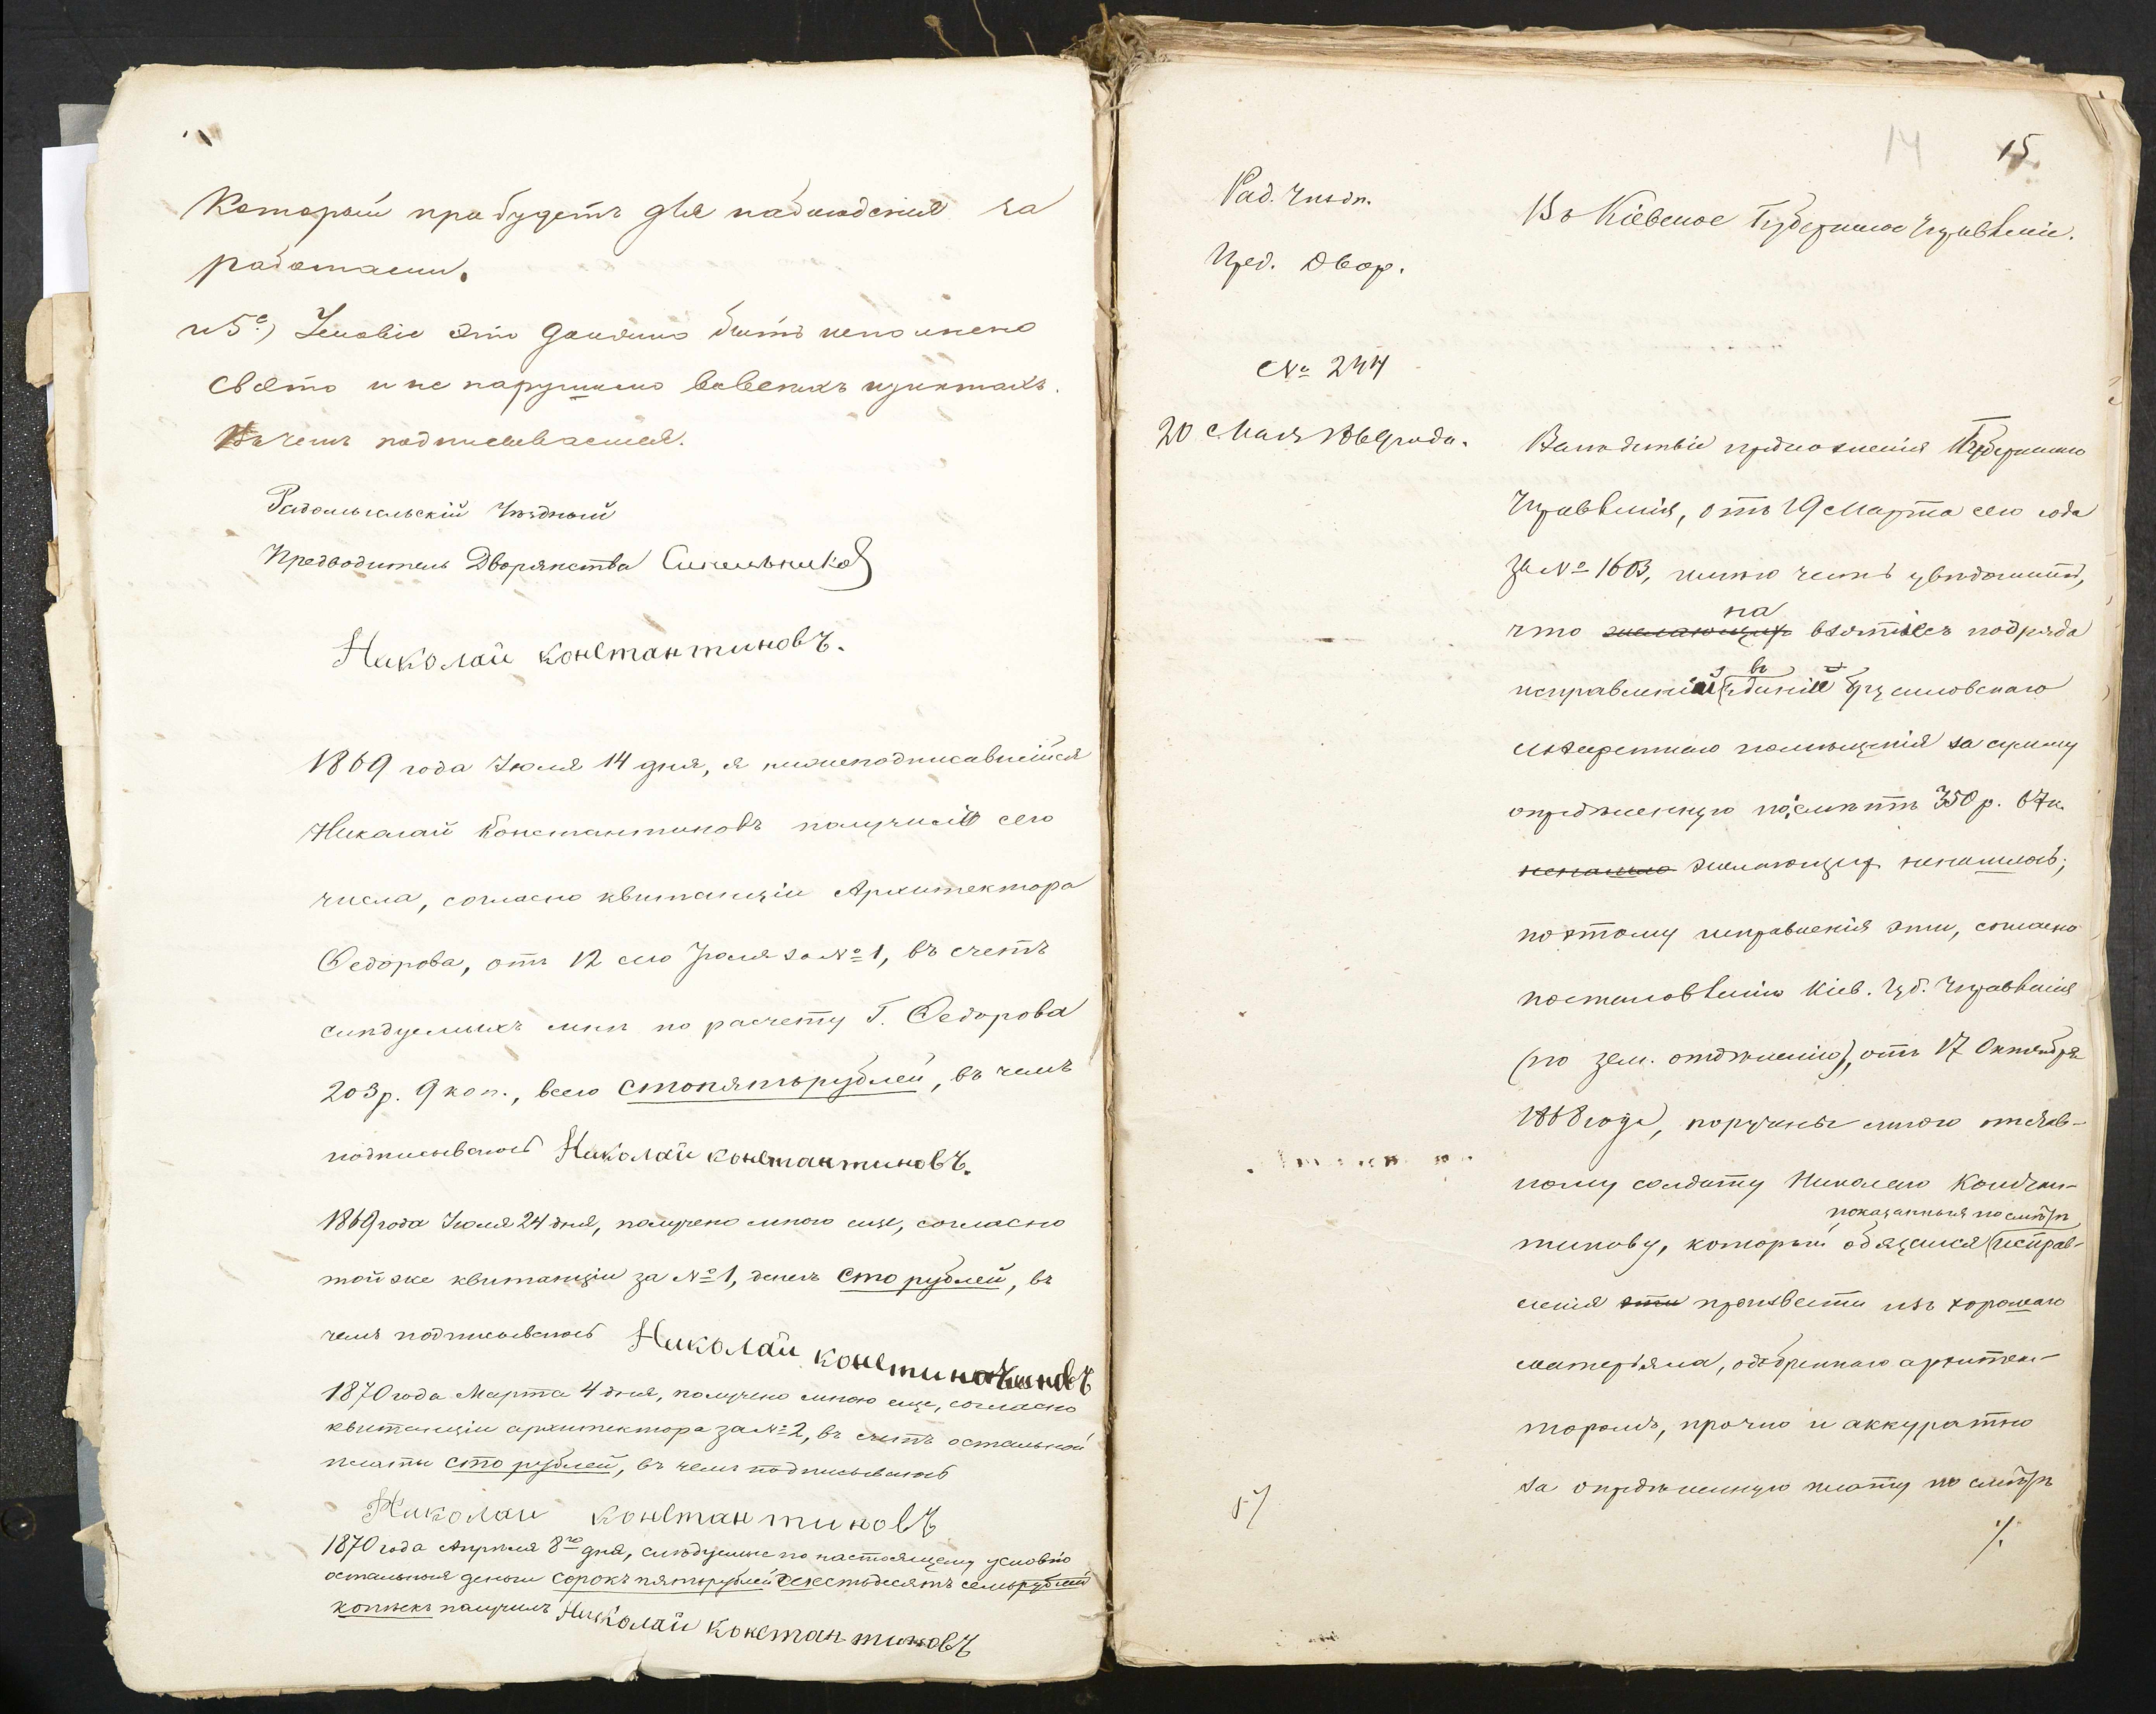 который прибудетъ для наблюденія за
работами.
и 5е) Условіе это должно быть исполнено
свято и не нарушимо вовсѣхъ пунктахъ.
Въ чемъ подписываемся.
Радомысльскій Уѣздный
Предводитель Дворянства Синельниковъ
Николай константиновъ.
1869 года Іюля 14 дня, я нижеподписавшійся
Николай Константиновъ получилъ сего
числа, согласно квитанціи Архитектора
Федорова, отъ 12 сего Іюля за № 1, въ счетъ
слѣдуемыхъ мнѣ по расчету Г. Федорова
203 р. 9 коп., всего стопятьрублей, въ чемъ
подписываюсь Николай константиновъ.
1869 года Іюля 24 дня, получено мною еще, согласно
той же квитанціи за № 1, денегъ сто рублей, въ
чемъ подписываюсь Николай
1870 года Марта 4 дня, получено мною еще, согласно
квитанціи архитектора за № 2, въ счетъ остальной
платы сто рублей, въ чемъ подписываюсь
Николай константиновъ
1870 года Апрѣля 8го дня, слѣдуемые по настоящему условію
остальныя деньги сорокъ пятьрублей шестьдесятъ семьрублей
копѣекъ получилъ Николай константиновъ
14 15
Рад. Уѣздн.
Пред. Двор.
Въ Кіевское Губернское Управленіе.
№ 244
20 Мая 1869 года.
Вслѣдствіе предложенія Губернскаго
Управленія, отъ 19 Марта сего года
за № 1603, имѣю честь увѣдомить,
на
что желающихъ взятіе съ подряда
въ
исправленій зданій Брусиловскаго
лагернаго помѣщенія за сумму
опредѣленную по смѣтѣ 350 р. 67 к.
ненашло желающихъ ненашлось,
поэтому исправленія эти, согласно
постановленію Кіев. Губ. Управленія
(по зем. отдѣленію), отъ 17 Октября
1868 года, поручены мною отстав-
ному солдату Николаю Констан-
показанныя по смѣтѣ
тинову, который обязался исправ-
ленія эти произвести изъ хорошаго
матеріяла, одобреннаго архитек-
торомъ, прочно и аккуратно
за опредѣленную плату по смѣтѣ
./.